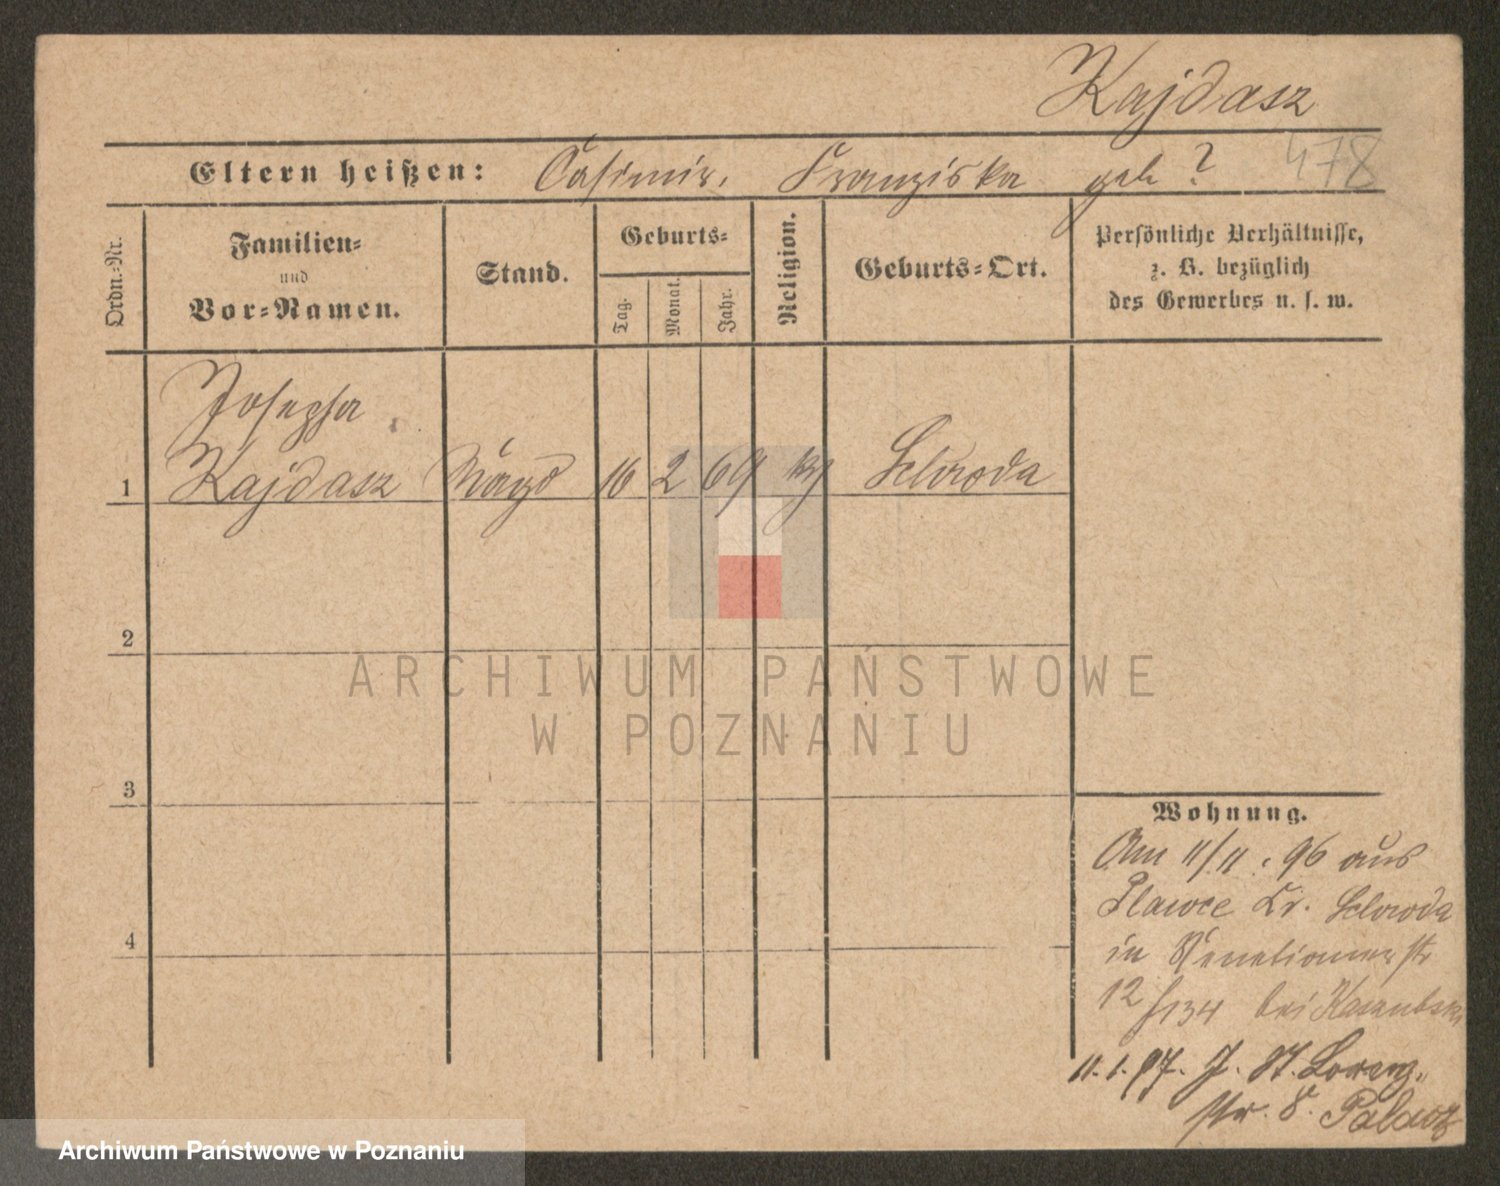 Kajdasz
Eltern heißen: Casimir, Franziska geb ? 478
Ordn.-Nr.
Familien- und Vor-Namen.
Stand.
Geburts-
Tag.
Monat.
Jahr.
Religion.
Geburts-Ort.
Persönliche Verhältnisse,
z. B. bezüglich
des Gewerbes u. s. w.
Josepha
1 Kajdasz Magd 16 2 69 Schroda
2
3
4
Wohnung.
Am 11/11. 96 aus
Plawce Kr. Schroda
in Venetianerstr
12/134 bei
11.1.97. J. St. Lorenz-
str. 8. Palacz
ARCHIWUM PAŃSTWOWE
W POZNANIU
Archiwum Państwowe w Poznaniu